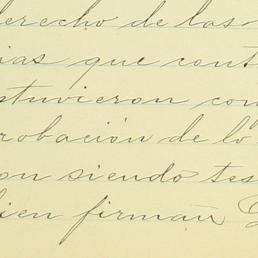 derecho de las
ias que cont
stuvieron con
robación de lo
on siendo tes
bien firman